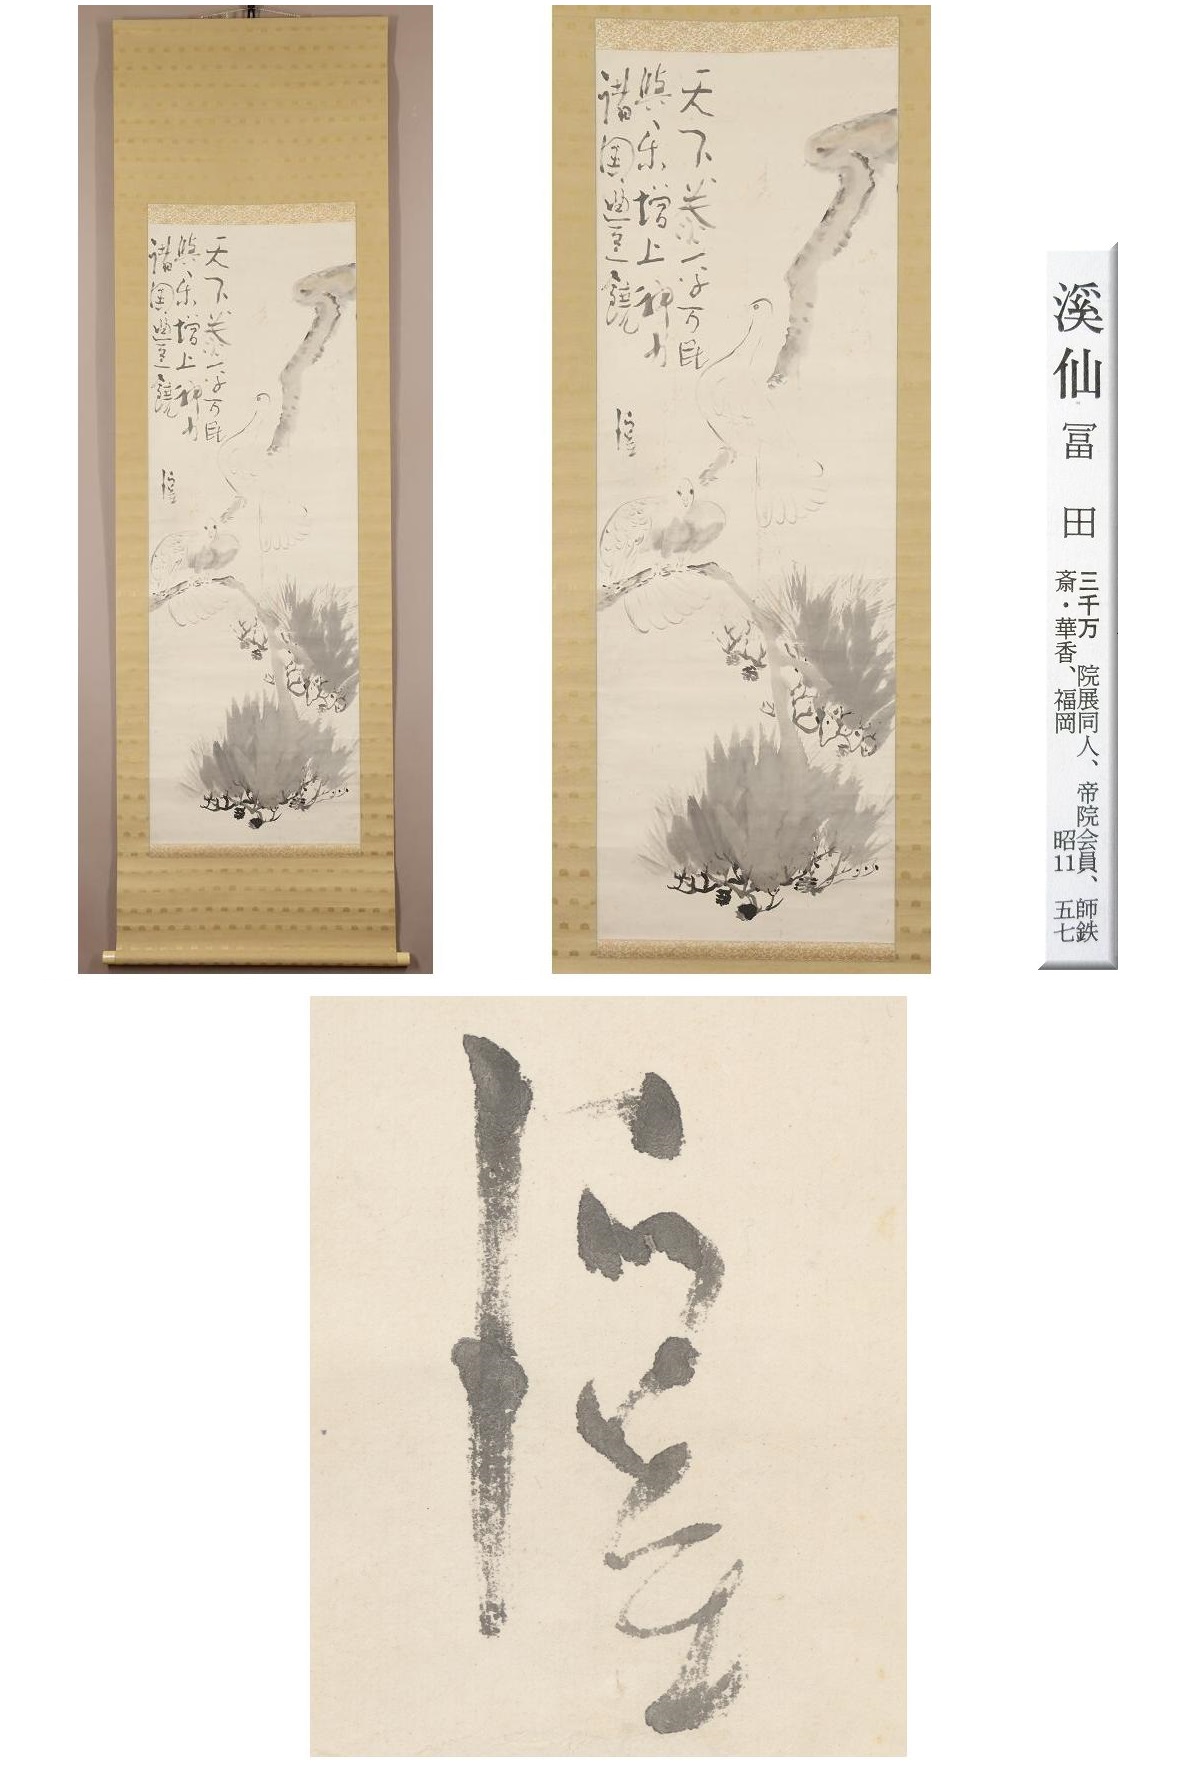 天下泰平万民
與楽増上神力
諸國豊饒
天下泰平万民
與楽増上神力
諸國豊饒
溪仙 冨田
三千万 院展同人、帝院会員、師鉄
斎・華香、福岡 昭11 五七